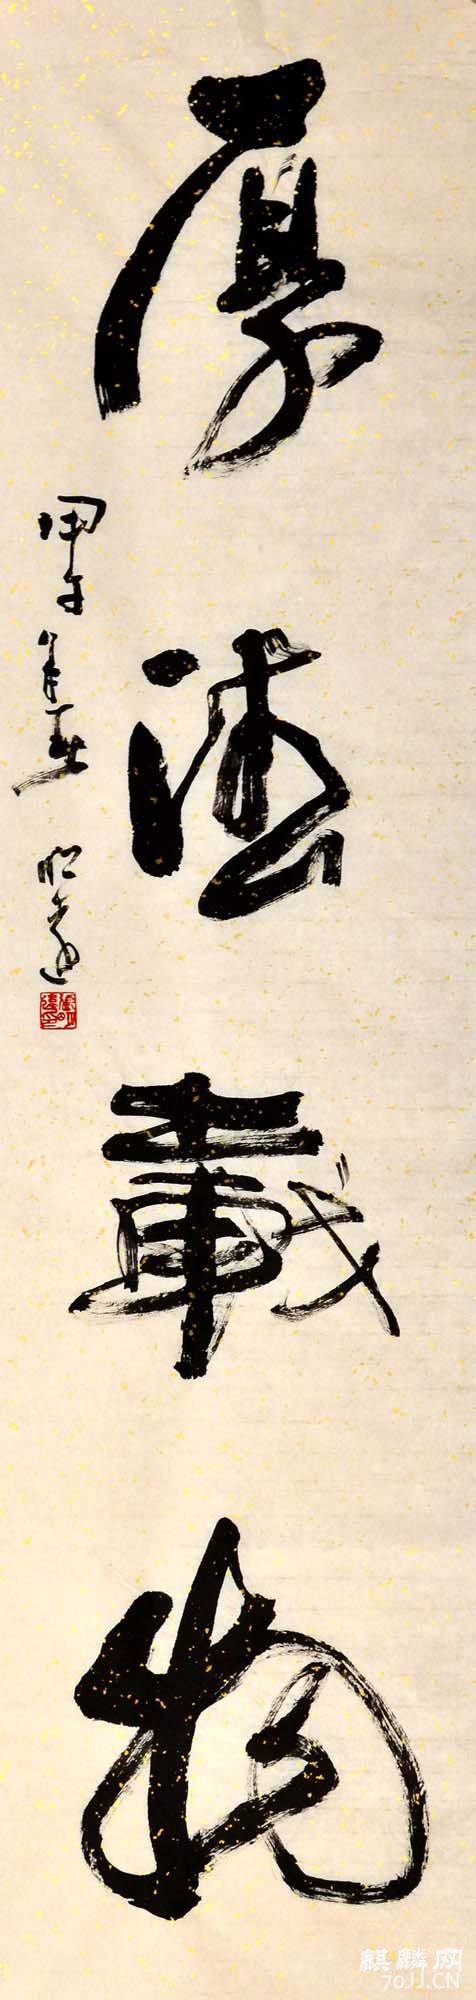 厚德载物
甲午年春
麒麟网
70JJ.CN